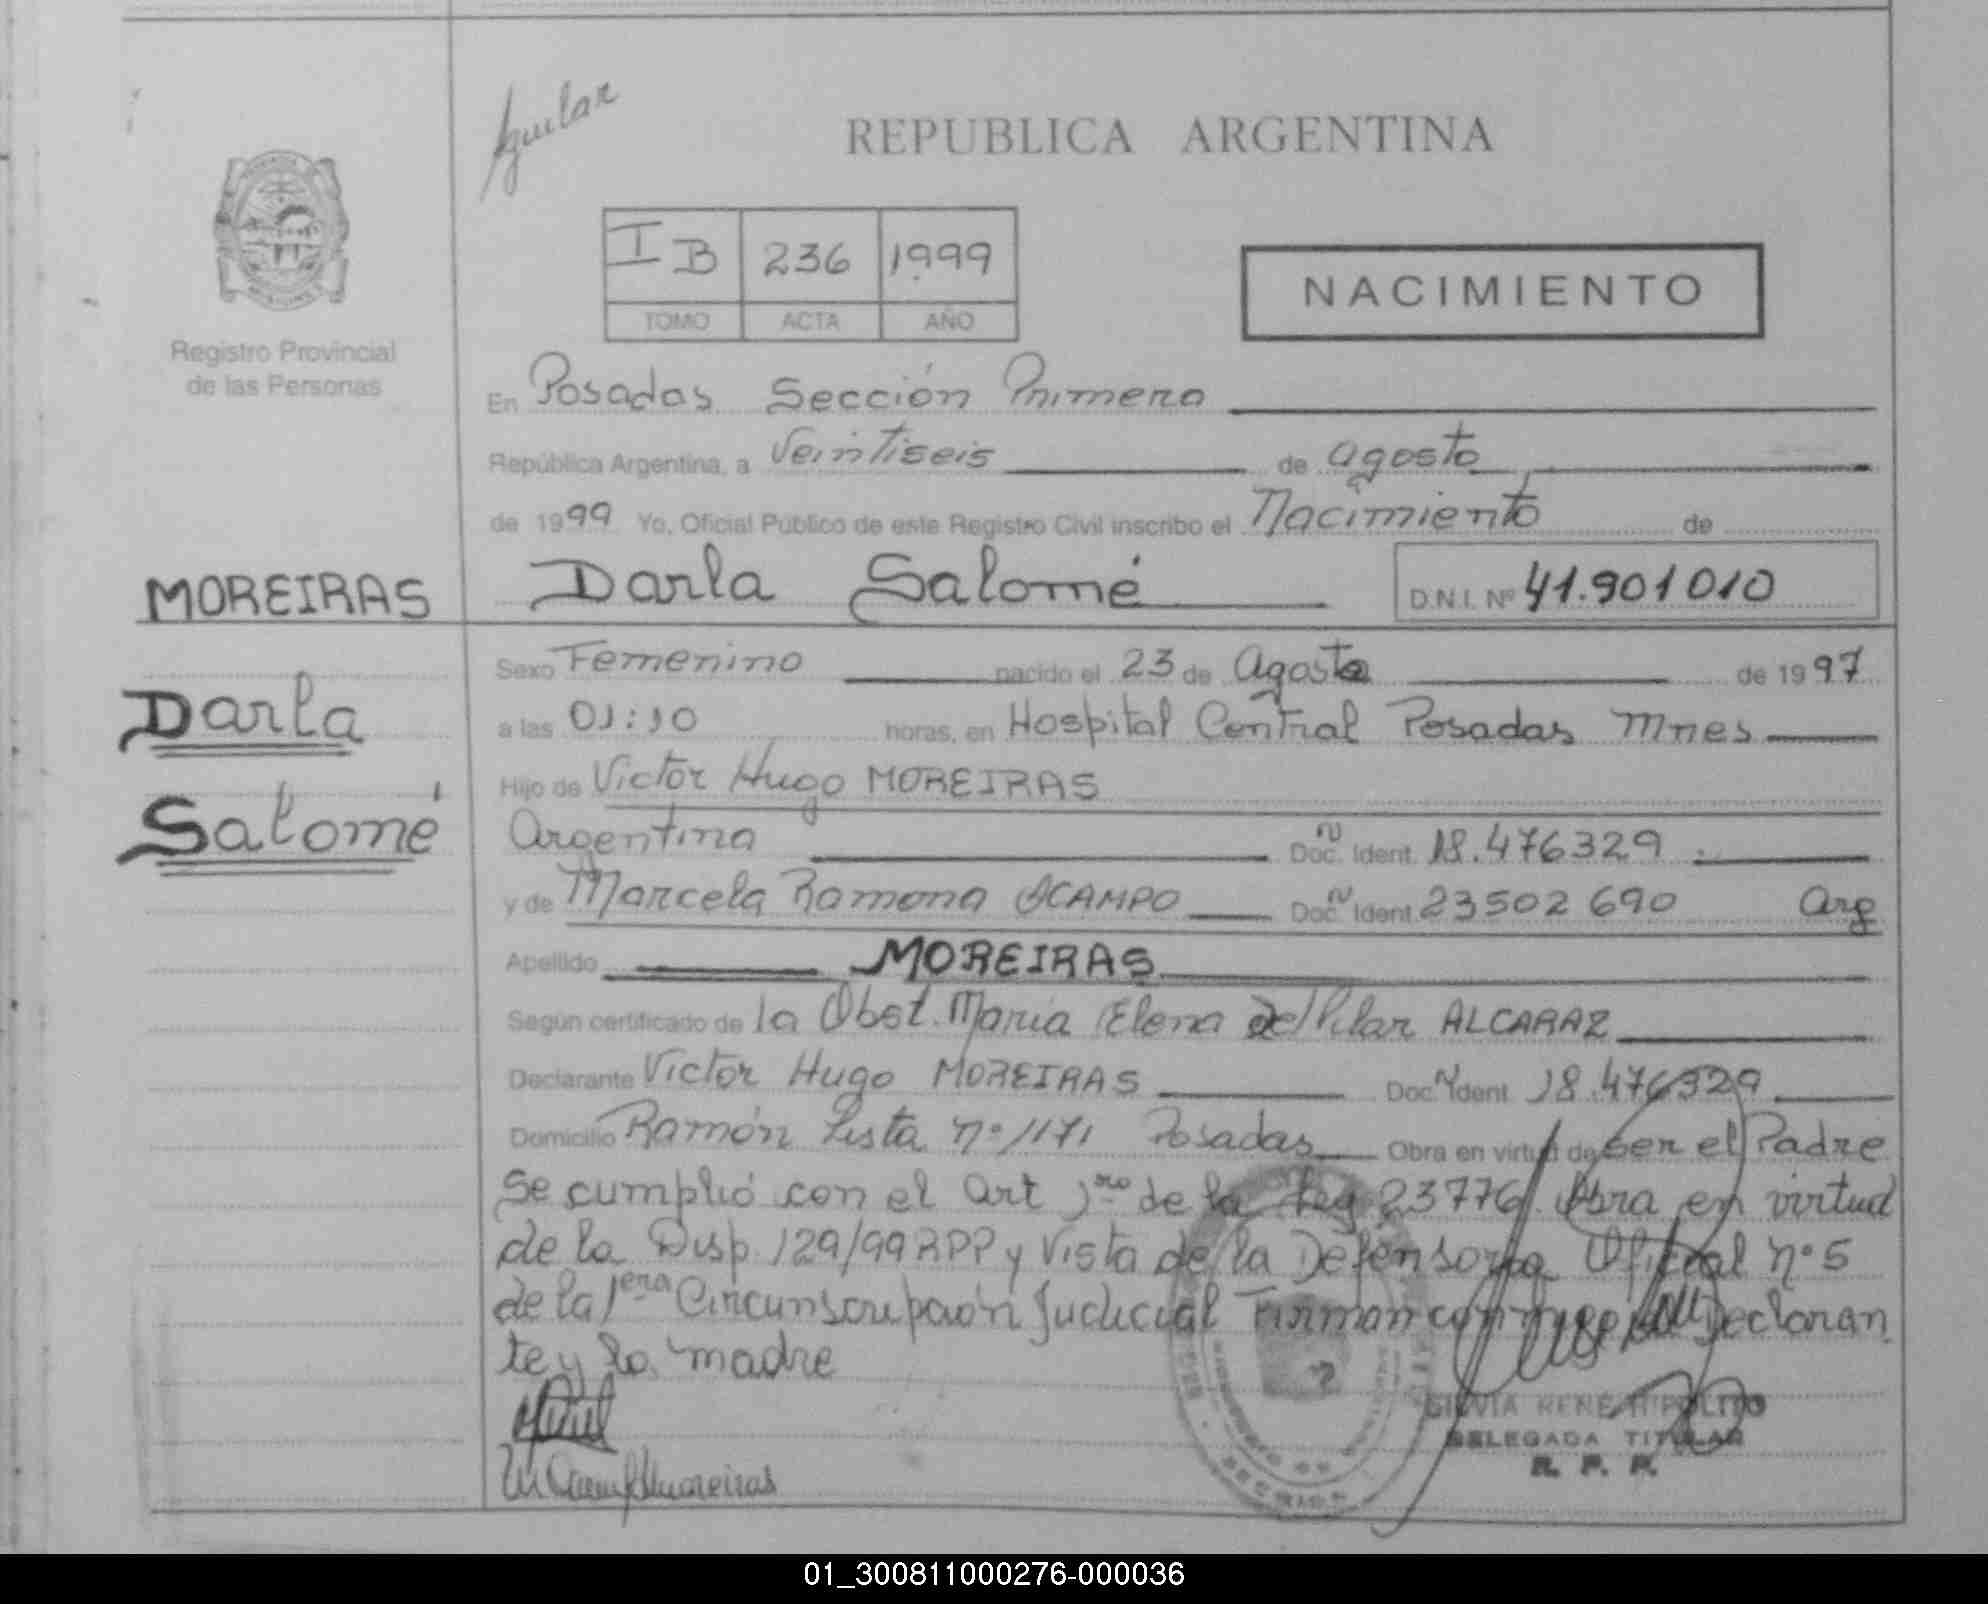 Aguilar
REPUBLICA ARGENTINA
I B 236 1999
TOMO ACTA AÑO
NACIMIENTO
Registro Provincial
de las Personas
En Posadas Sección Primera
República Argentina, a Veintiseis de agosto
de 1999 Yo, Oficial Público de este Registro Civil inscribo el Nacimiento de
MOREIRAS Darla Salomé D.N.I. Nº 41.901010
Darla
Salomé
Sexo Femenino nacido el 23 de Agosto de 1997
a las 01:10 horas, en Hospital Central Posadas Mnes
Hijo de Victor Hugo MOREIRAS
Argentino Doc. Ident. 18.476329
y de Marcela Ramona OCAMPO Doc. Ident. 23502690 Arg
Apellido MOREIRAS
Según certificado de la Obst. Maria Elena del Pilar ALCARAZ
Declarante Victor Hugo MOREIRAS Doc. Ident. 18.476329
Domicilio Ramón Lista nº 1171 Posadas Obra en virtud de ser el Padre
Se cumplió con el art 1ro de la Ley 23776. Obra en virtud
de la Disp. 129/99 RPP y Vista de la Defensoria Oficial nº 5
de la 1era Circunscripción Judicial Firman conmigo el Declaran
te y la madre
SILVIA RENE HIPOLITO
DELEGADA TITULAR
R. P. P.
01_300811000276-000036